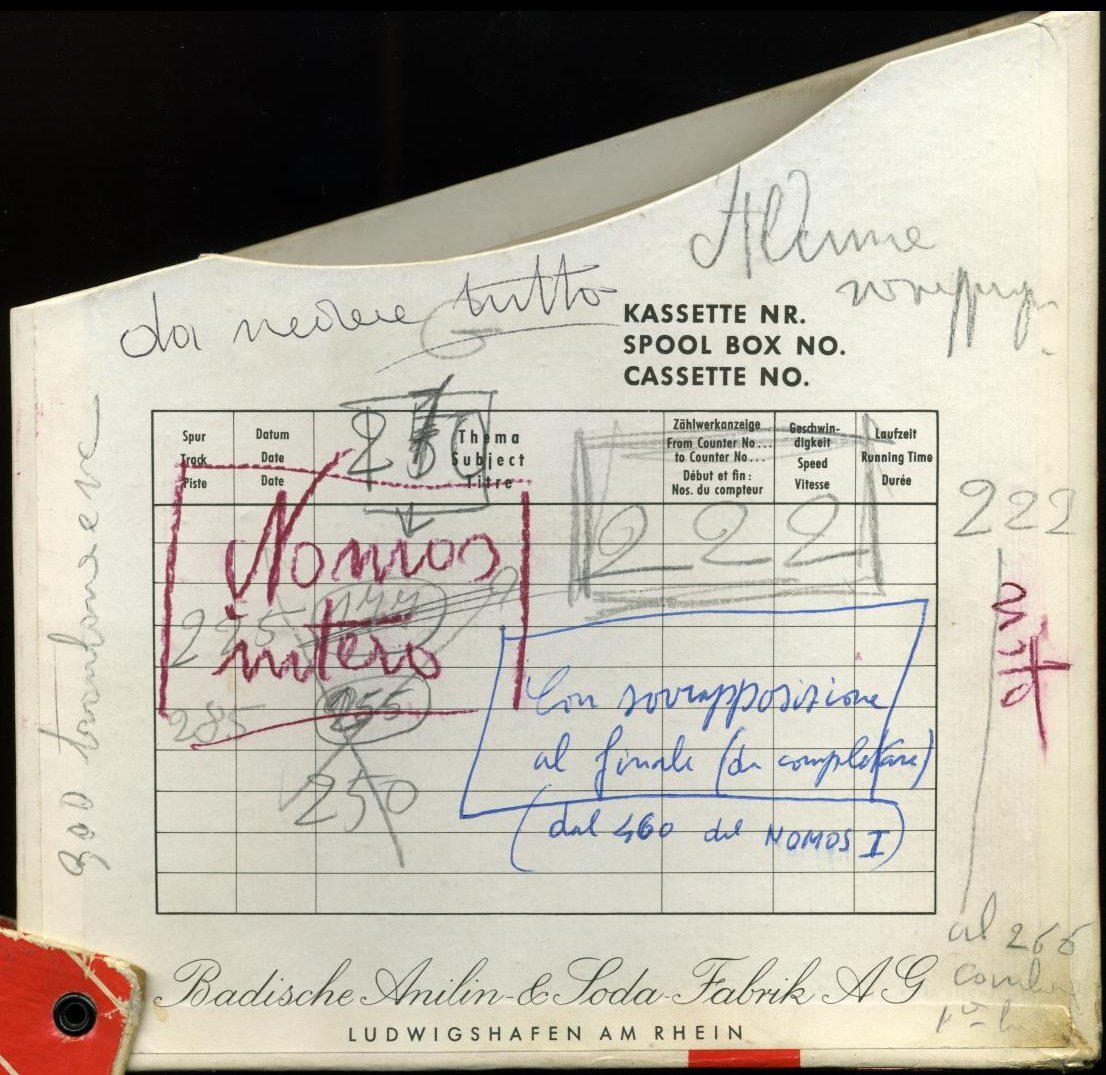 Alcune
da vedere tutto
KASSETTE NR.
SPOOL BOX NO.
CASSETTE NO.
Spur
Track
Piste
Datum
Date
Date
250
Thema
Subject
Titre
Zählwerkanzeige
From Counter No...
to Counter No...
Début et fin:
Nos. du compteur
Geschwin-
digkeit
Speed
Vitesse
Laufzeit
Running Time
Durée
222
222
Nomos
intero
177
225
255
285
250
Con sovrapposizione
al finale (da completare)
(dal 460 del NOMOS I)
al 265
Badische Anilin- & Soda-Fabrik AG
LUDWIGSHAFEN AM RHEIN